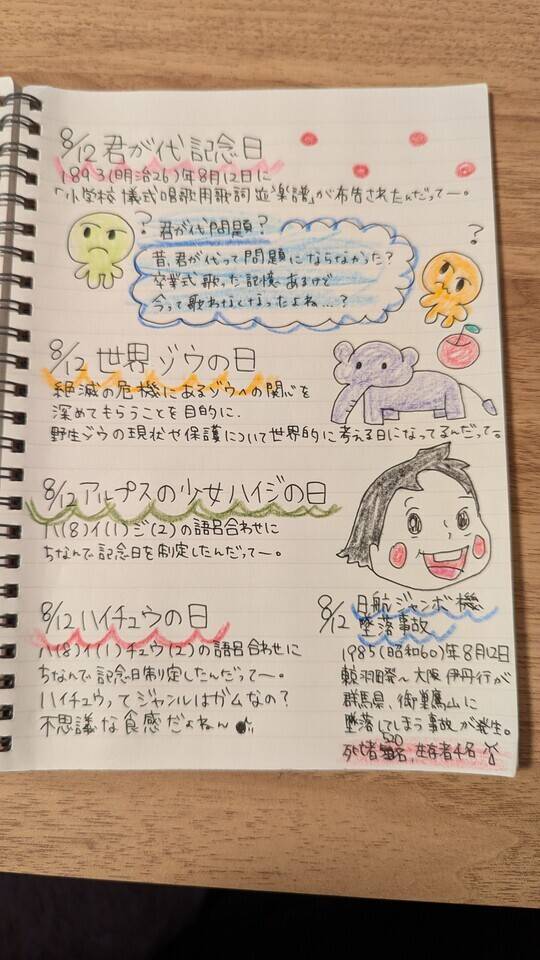 8/12 君が代記念日
1893(明治26)年8月12日に
「小学校儀式唱歌用歌詞並楽譜」が布告されたんだってー。
? 君が代問題?
?
昔、君が代って問題にならなかった?
卒業式歌った記憶あるけど
今って歌わなくなったよね…?
8/12 世界ゾウの日
絶滅の危機にあるゾウへの関心を
深めてもらうことを目的に、
野生ゾウの現状や保護について世界的に考える日になってるんだって。
8/12 アルプスの少女ハイジの日
ハ(8)イ(1)ジ(2)の語呂合わせに
ちなんで記念日を制定したんだってー。
8/12 ハイチュウの日
ハ(8)イ(1)チュウ(2)の語呂合わせに
ちなんで記念日制定したんだってー。
ハイチュウってジャンルはガムなの?
不思議な食感だよねん
8/12 日航ジャンボ機
墜落事故
1985(昭和60)年8月12日
羽田発〜大阪伊丹行が
群馬県、御巣鷹山に
墜落してしまう事故が発生。
死亡者520名、生存者4名